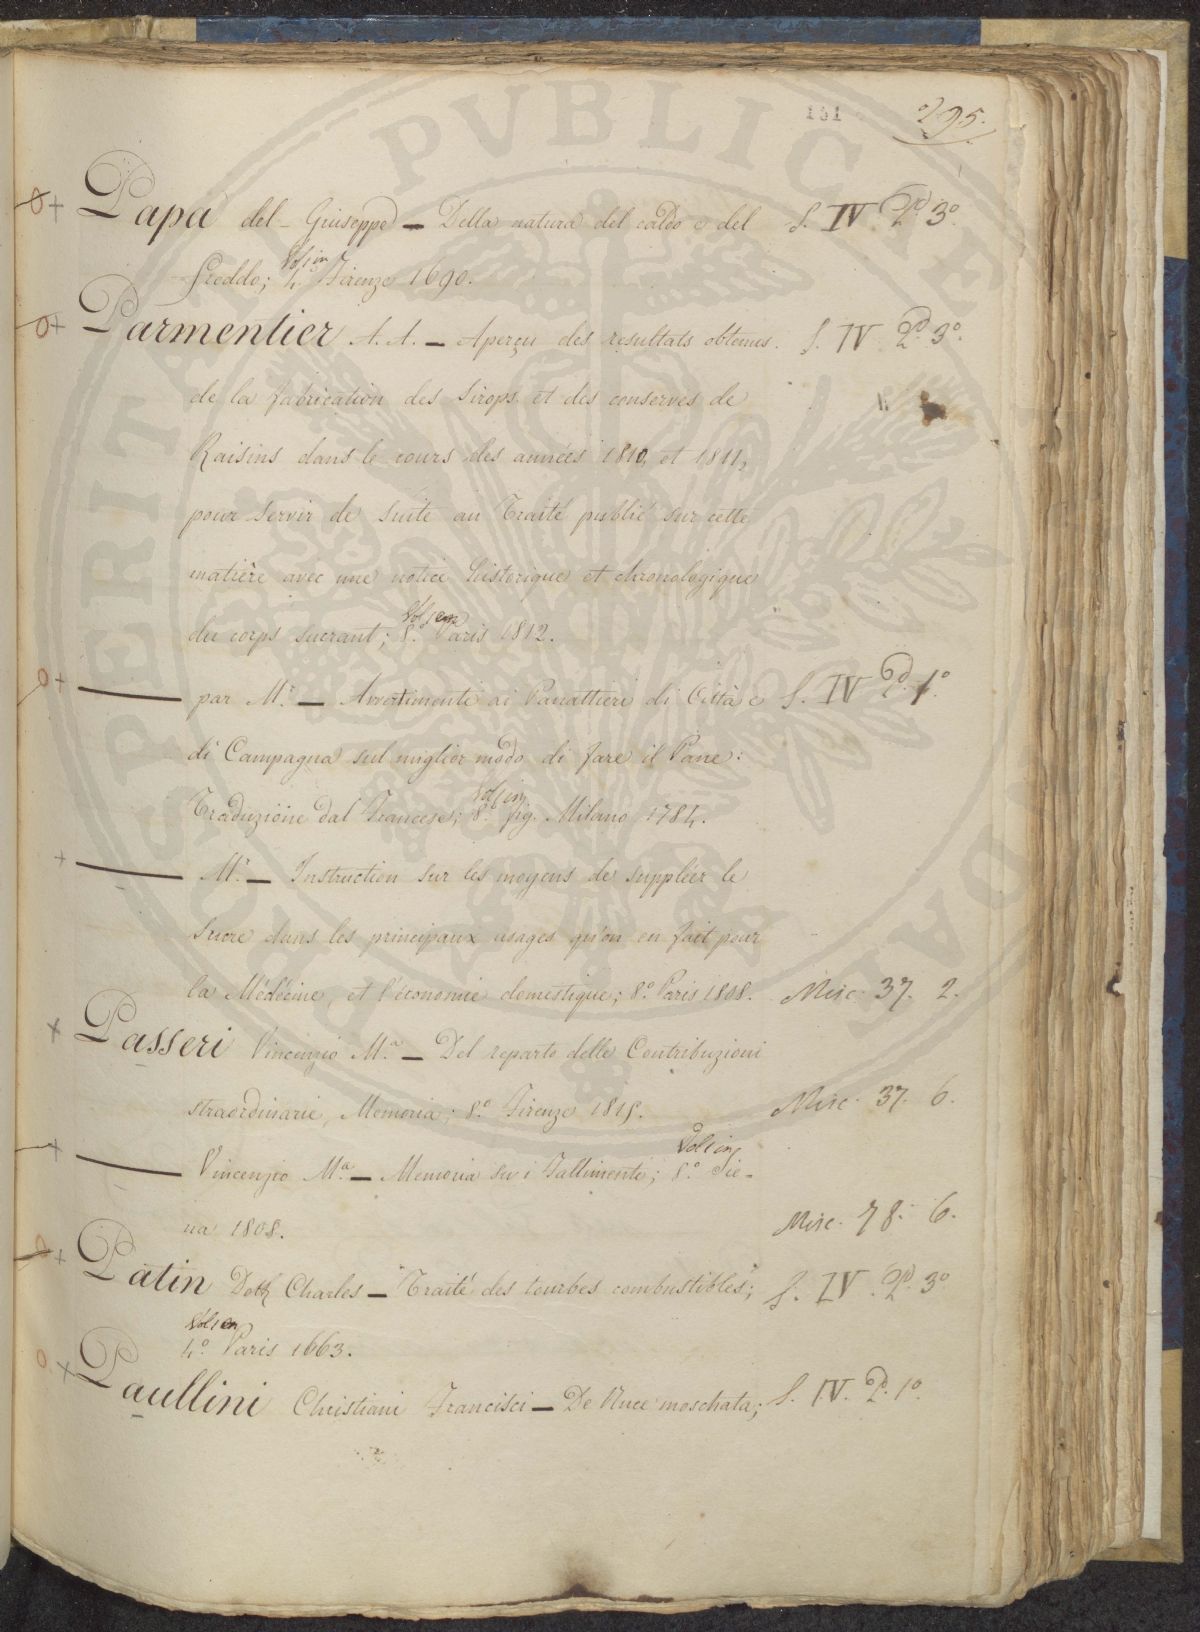 151 295.
Papa del Giuseppe — Della natura del caldo e del S. IV. Pd. 3o.
freddo; Vol. 1 in 4.o Firenze 1690.
Parmentier A. A. — Aperçu des resultats obtenus S. IV. Pd. 3o.
de la fabrication des Sirops et des conserves de
Raisins dans le cours des années 1810, et 1811,
pour servir de suite au Traité publié sur cette
matière avec une notice historique et chronologique
du corps sucrant; Vol. 1 en 8.o Paris 1812.
— par M.r — Avvertimenti ai Panattieri di Città e S. IV. Pd. 1o.
di Campagna sul miglior modo di fare il Pane:
Traduzione dal Francese; Vol. 1 in 8.o fig. Milano 1784.
— M.r — Instruction sur les moyens de suppléer le
Sucre dans les principaux usages qu'on en fait pour
la Médécine, et l'économie domestique; 8.o Paris 1808. Misc. 37. 2.
Passeri Vincenzio M.a — Del reparto delle Contribuzioni
straordinarie, Memoria; 8.o Firenze 1815. Misc. 37. 6.
— Vincenzio M.a — Memoria su i Fallimenti; Vol. 1 in 8.o Sie-
na 1808. Misc. 78. 6.
Patin Charles — Traité des tourbes combustibles; S. IV. Pd. 3o
Vol. 1 en 4.o Paris 1663.
Paullini Christiani Francisci — De Nuce moschata; S. IV. Pd. 1o.
PROSPERITATI PVBLICAE NOVAE